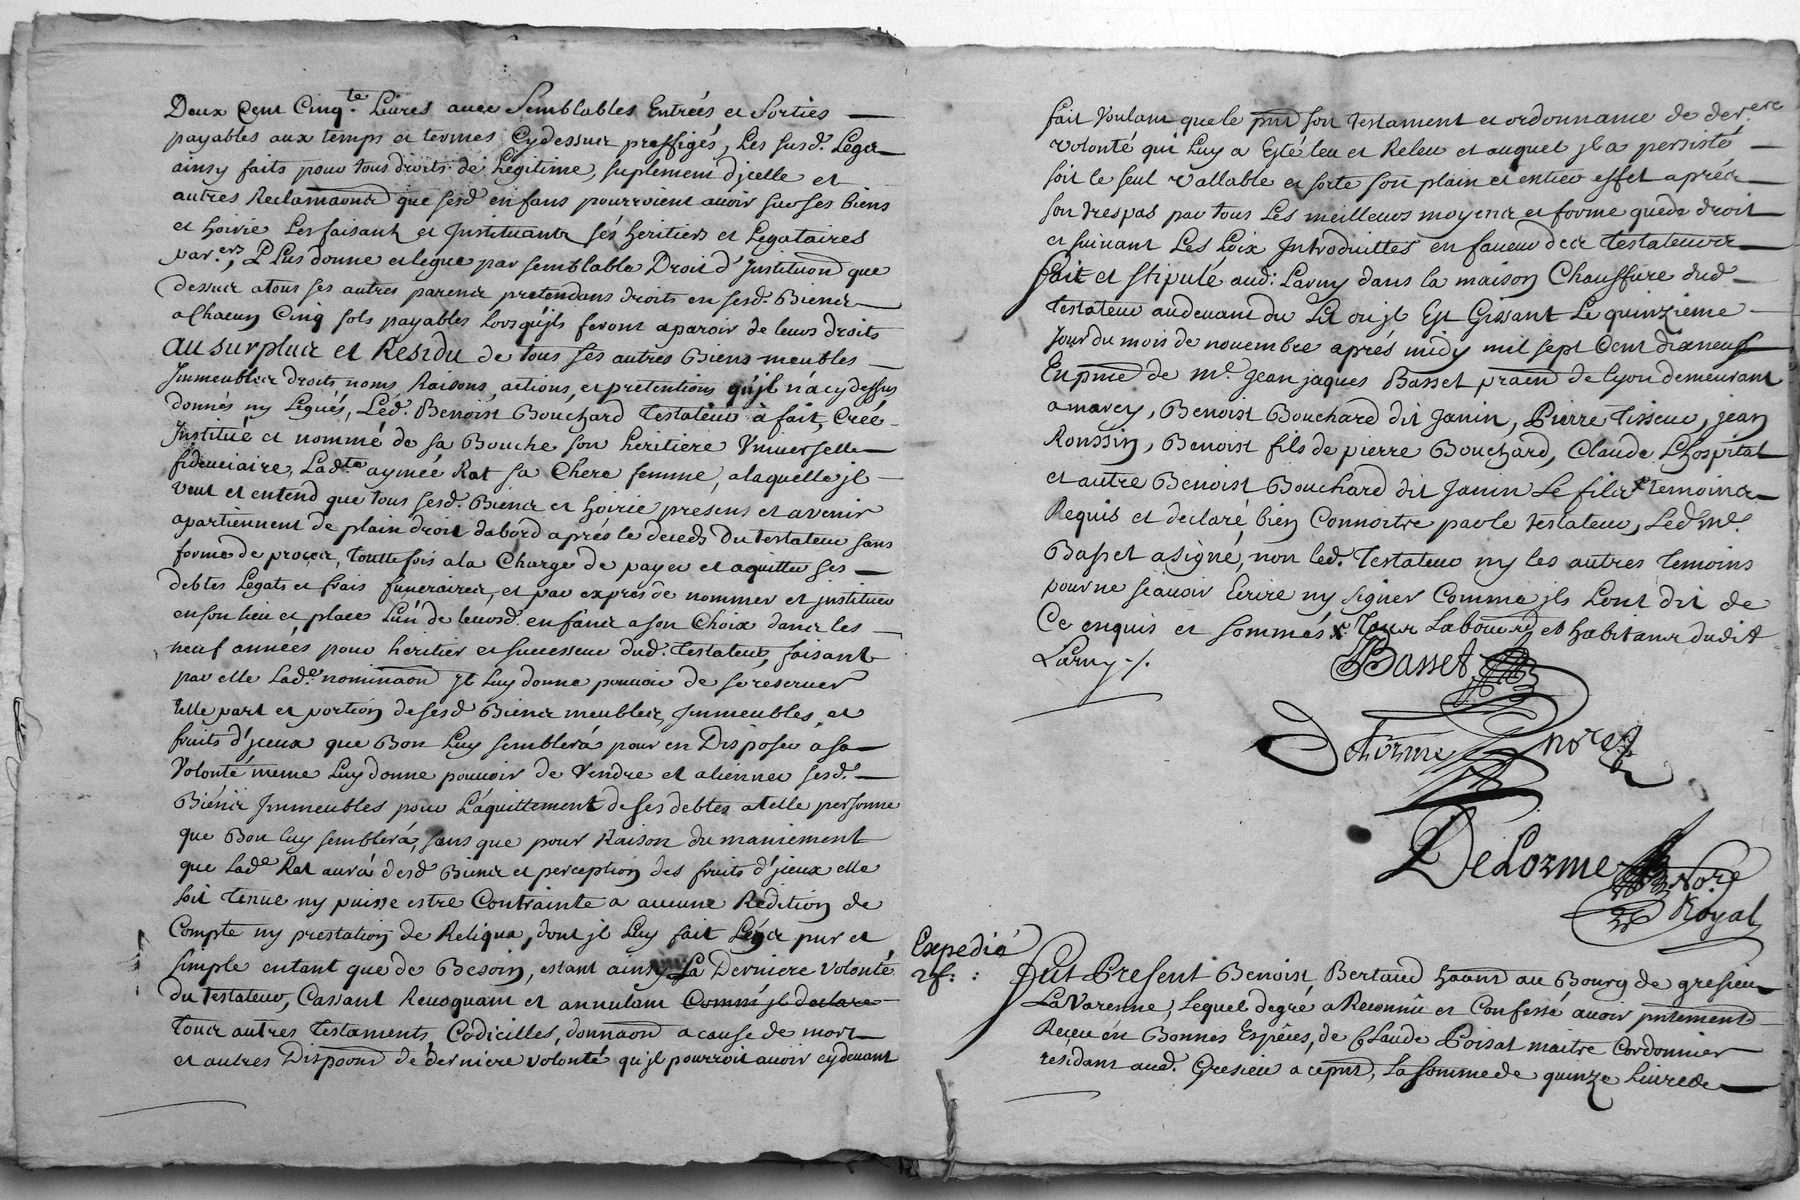 Deux Cent Cinq.te Livres avec Semblables Entreés et Sorties
payables aux temps et termes Cydessus preffigés, Les susd. Legat
ainsy faits pour tous droits de Legitime, suplement d'jcelle et
autres Reclamaons que sesd. enfans pourroient avoir sur ses biens
et hoirie Les faisant et Jnstituants sés heritiers et Legataires
par.ers, Plus donne et legue par semblable Droit d'Jnstitution que
dessus atous ses autres parens pretendans droits en sesd. Biens
a Chacun Cinq sols payables lorsqu'jls feront aparoir de leurs droits
au surplus et Residu de tous ses autres Biens meubles
Jmmeubles droits noms Raisons, actions, et pretentions qu'jl n'a cydessus
donnés ny Legués, Léd. Benoist Bouchard testateur à fait, Creé
Jnstitué et nommé de sa Bouche son heritiere Vniverselle
fiduciaire, Lad.te aymée Rat sa Chere femme, alaquelle jl
veut et entend que tous sesd. Biens et hoirie presens et avenir
apartiennent de plain droit dabord aprés le deceds du testateur sans
forme de procez, touttefois ala Charge de payer et aquitter ses
debtes Legats et frais funeraires, et par exprés de nommer et jnstituer
en son lieu et place L'un de leursd. enfans a son Choix dans les
neuf années pour heritier et successeur dud. testateur, faisant
par elle Lad.e nominaon jl Luy donne pouvoir de se reserver
telle part et portion de sesd. Biens meubles, Jmmeubles, et
fruits d'jceux que Bon Luy semblera pour en Disposer a sa
Volonté meme Luy donne pouvoir de Vendre et alienner sesd.
Biens Jmmeubles pour L'aquittement de ses debtes atelle personne
que Bon luy semblerá, sans que pour Raison du maniement
que Lad.e Rat aurá desd. Biens et perception des fruits d'jceux elle
soit tenue ny puisse estre Contrainte a aucune Redition de
Compte ny prestation de Reliqua, dont jl Luy fait Légat pur et
simple entant que de Besoin, estant ainsy La Derniere volonté
du testateur, Cassant Revoquant et annulant Commé jl declare
tous autres testaments, Codicilles, donnaons a cause de mort
et autres Dispoons de derniere volonté qu'jl pourroit avoir cydevant
fait Voulant que le pnt son testament et ordonnance de der.ere
volonté qui Luy a Esté leu et Releu et auquel jl a persisté
soit le seul vallable et sorte son plain et entier effet aprés
son trespas par tous Les meilleurs moyens et forme que de droit
et suivant Les Loix Jntroduittes en faveur des testateurs
fait et stipulé aud. Larny dans la maison Chauffure dud.
testateur audevant du Lit ou jl Est Gissant Le quinzieme
Jour du mois de novembre aprés midy mil sept Cent dixneuf
En pnce de m.e Jean jaques Basset praen de lyon demeurant
a marcy, Benoist Bouchard dit Janin, Pierre tisseur, jean
Roussin, Benoist fils de pierre Bouchard, Claude Lhospital
et autre Benoist Bouchard dit Janin Le fils x temoins
Requis et declaré bien Connoitre par le testateur, Led. m.e
Basset a signé, non led. testateur ny les autres temoins
pour ne sçavoir Ecrire ny signer Comme jls Lont dit de
Ce enquis et sommés x. tous Laboureurs et habitans dudit
Larny ./.
Basset
Delorme no.re
DeLorme
No.re
Royal
Expedié
Fut Present Benoist Bertaud haant au Bourg de gresieu
La Varenne, Lequel degré a Reconnu et Confessé avoir pntement
Receu en Bonnes Espêces, de Claude Poisat maitre Cordonnier
residant aud. Gresieu a cepnt, La Somme de quinze Livres de